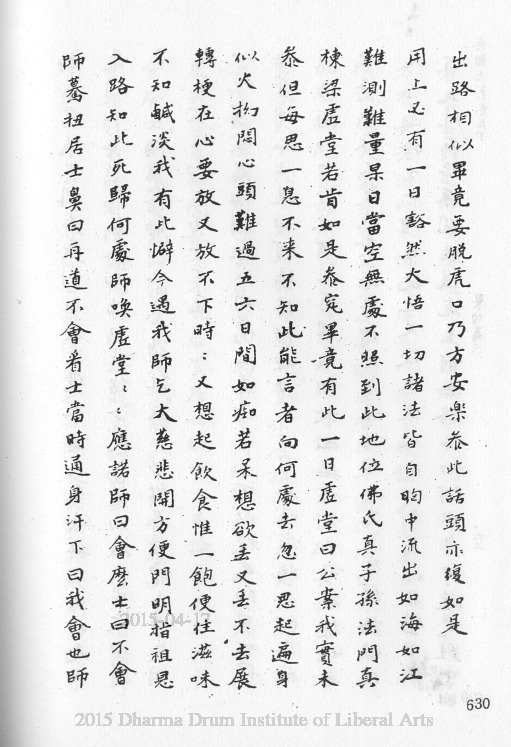 出路相似畢竟要脫虎口乃方安樂叅此話頭亦復如是
用上必有一日豁然大悟一切諸法皆自胸中流出如海如江
難測難量杲日當空無處不照到此地位佛氏真子孫法門真
棟梁虛堂若肯如是叅究畢竟有此一日虛堂曰公案我實未
叅但每思一息不来不知此能言者向何處去忽一思起遍身
似火杓悶心頭難過五六日間如痴若呆想欲丟又丟不去展
轉梗在心要放又放不下時〻又想起飲食惟一飽便住滋味
不知鹹淡我有此懈今遇我師乞大慈悲開方便門明指祖思
入路知此死歸何處師喚虛堂〻〻應諾師曰會麽士曰不會
師驀扭居士鼻曰再道不會看士當時通身汗下曰我會也師
630
2015-04-17
2015 Dharma Drum Institute of Liberal Arts